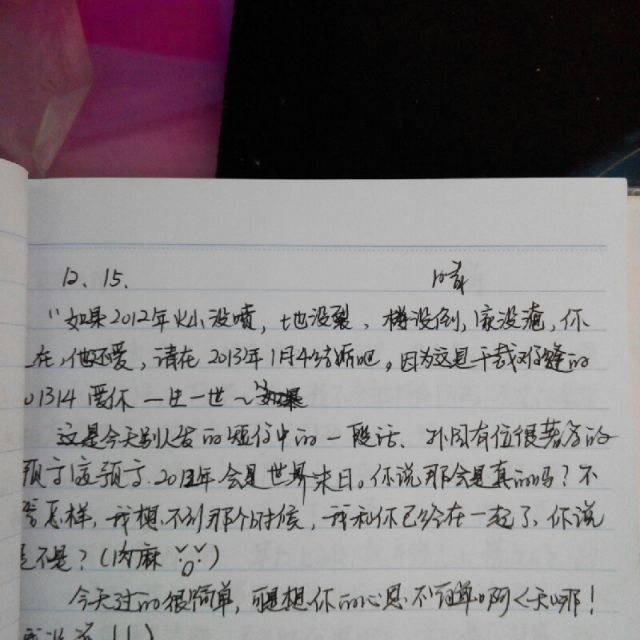 12、15. 晴
"如果2012年火山没喷，地没裂、楼没倒，家没淹，你
在，他还爱，请在2013年1月4结婚吧，因为这是千载难逢的
01314 爱你一生一世～如果
这是今天别人发的短信中的一段话、外国有位很著名的
预言家预言、2012年会是世界末日。你说那会是真的吗？不
管怎样，我想，不到那个时候，我和你已经在一起了，你说
是不是？(肉麻
今天过的很简单，可是想你的心思，不简单啊〈天哪！